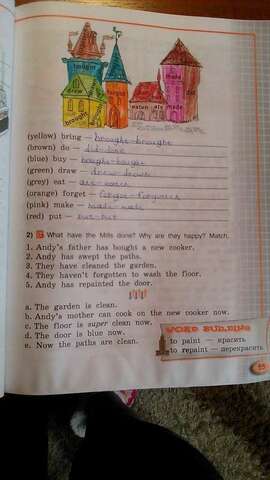 bought
drew
forgot
made
eaten ate made
brought
(yellow) bring — brought-brought
(brown) do — did-done
(blue) buy — bought-bought
(green) draw — drew-drawn
(grey) eat — ate-eaten
(orange) forget — forgot-forgotten
(pink) make — made-made
(red) put — put-put
2) What have the Mills done? Why are they happy? Match.
1. Andy's father has bought a new cooker.
2. Andy has swept the paths.
3. They have cleaned the garden.
4. They haven't forgotten to wash the floor.
5. Andy has repainted the door.
a. The garden is clean.
b. Andy's mother can cook on the new cooker now.
c. The floor is super clean now.
d. The door is blue now.
e. Now the paths are clean.
WORD BUILDING
to paint — красить
to repaint — перекрасить